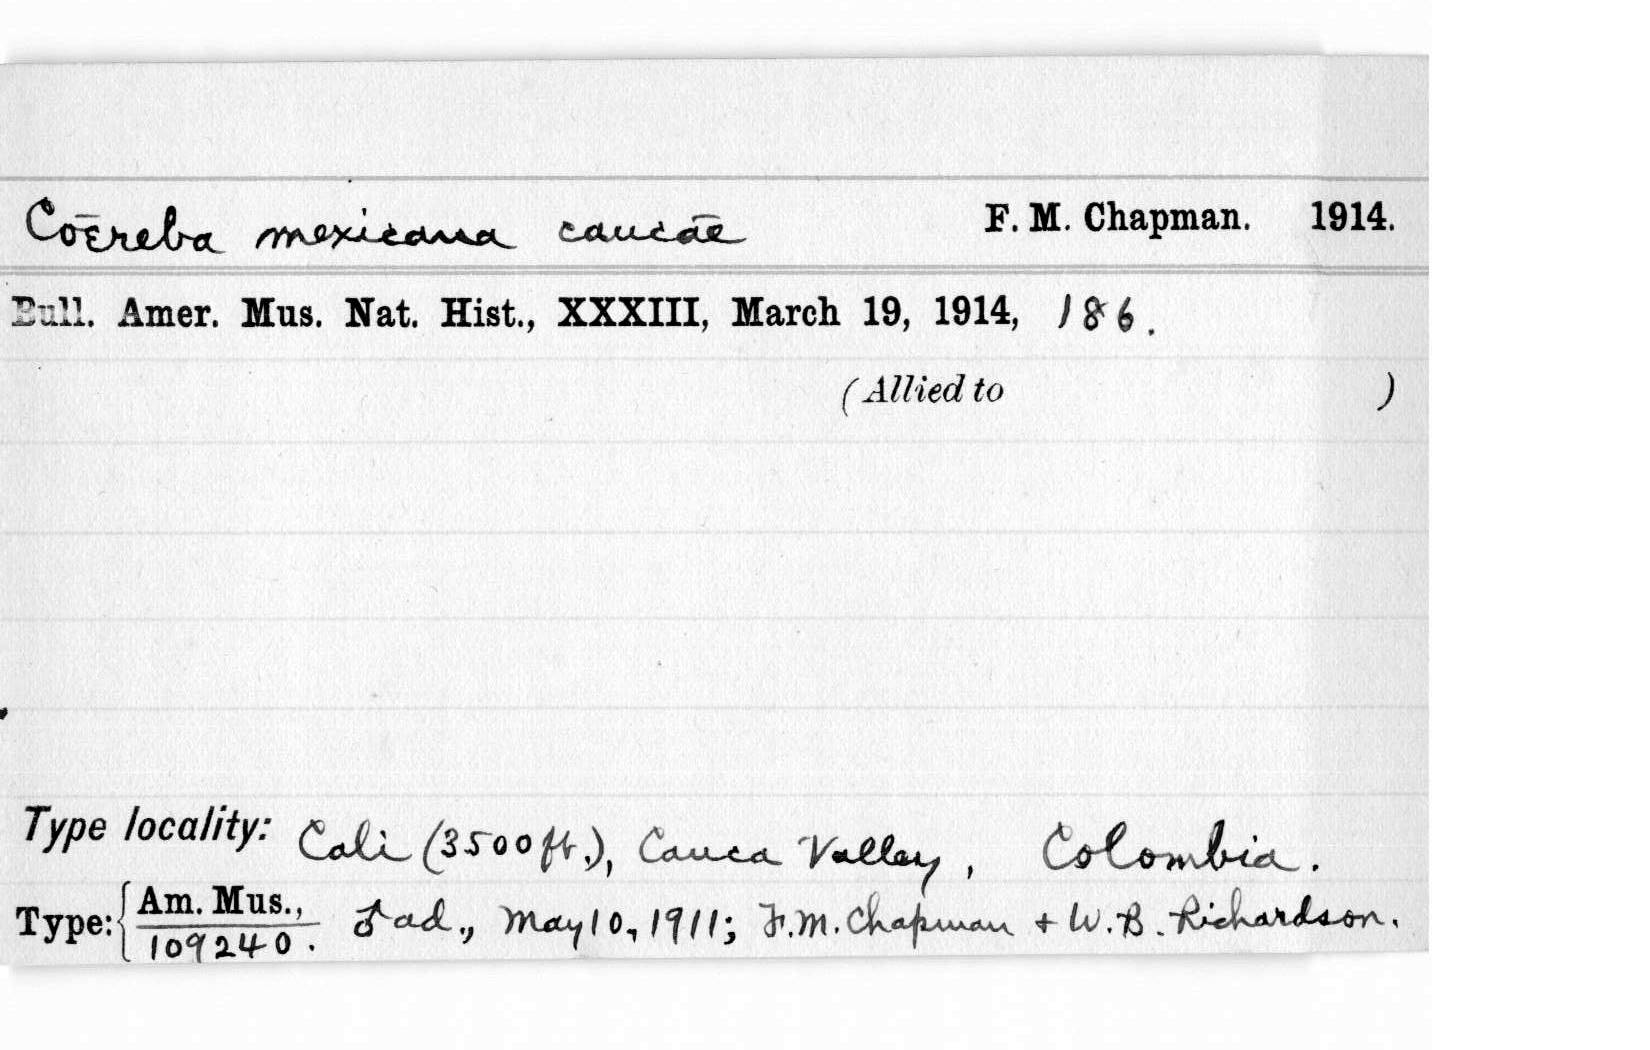 Coereba mexicana caucae F. M. Chapman. 1914.
Bull. Amer. Mus. Nat. Hist., XXXIII, March 19, 1914, 186.
(Allied to )
Type locality: Cali (3500 ft.), Cauca Valley, Colombia.
Type: { Am. Mus., ♂ ad., May 10, 1911; F. M. Chapman + W. B. Richardson.
109240.